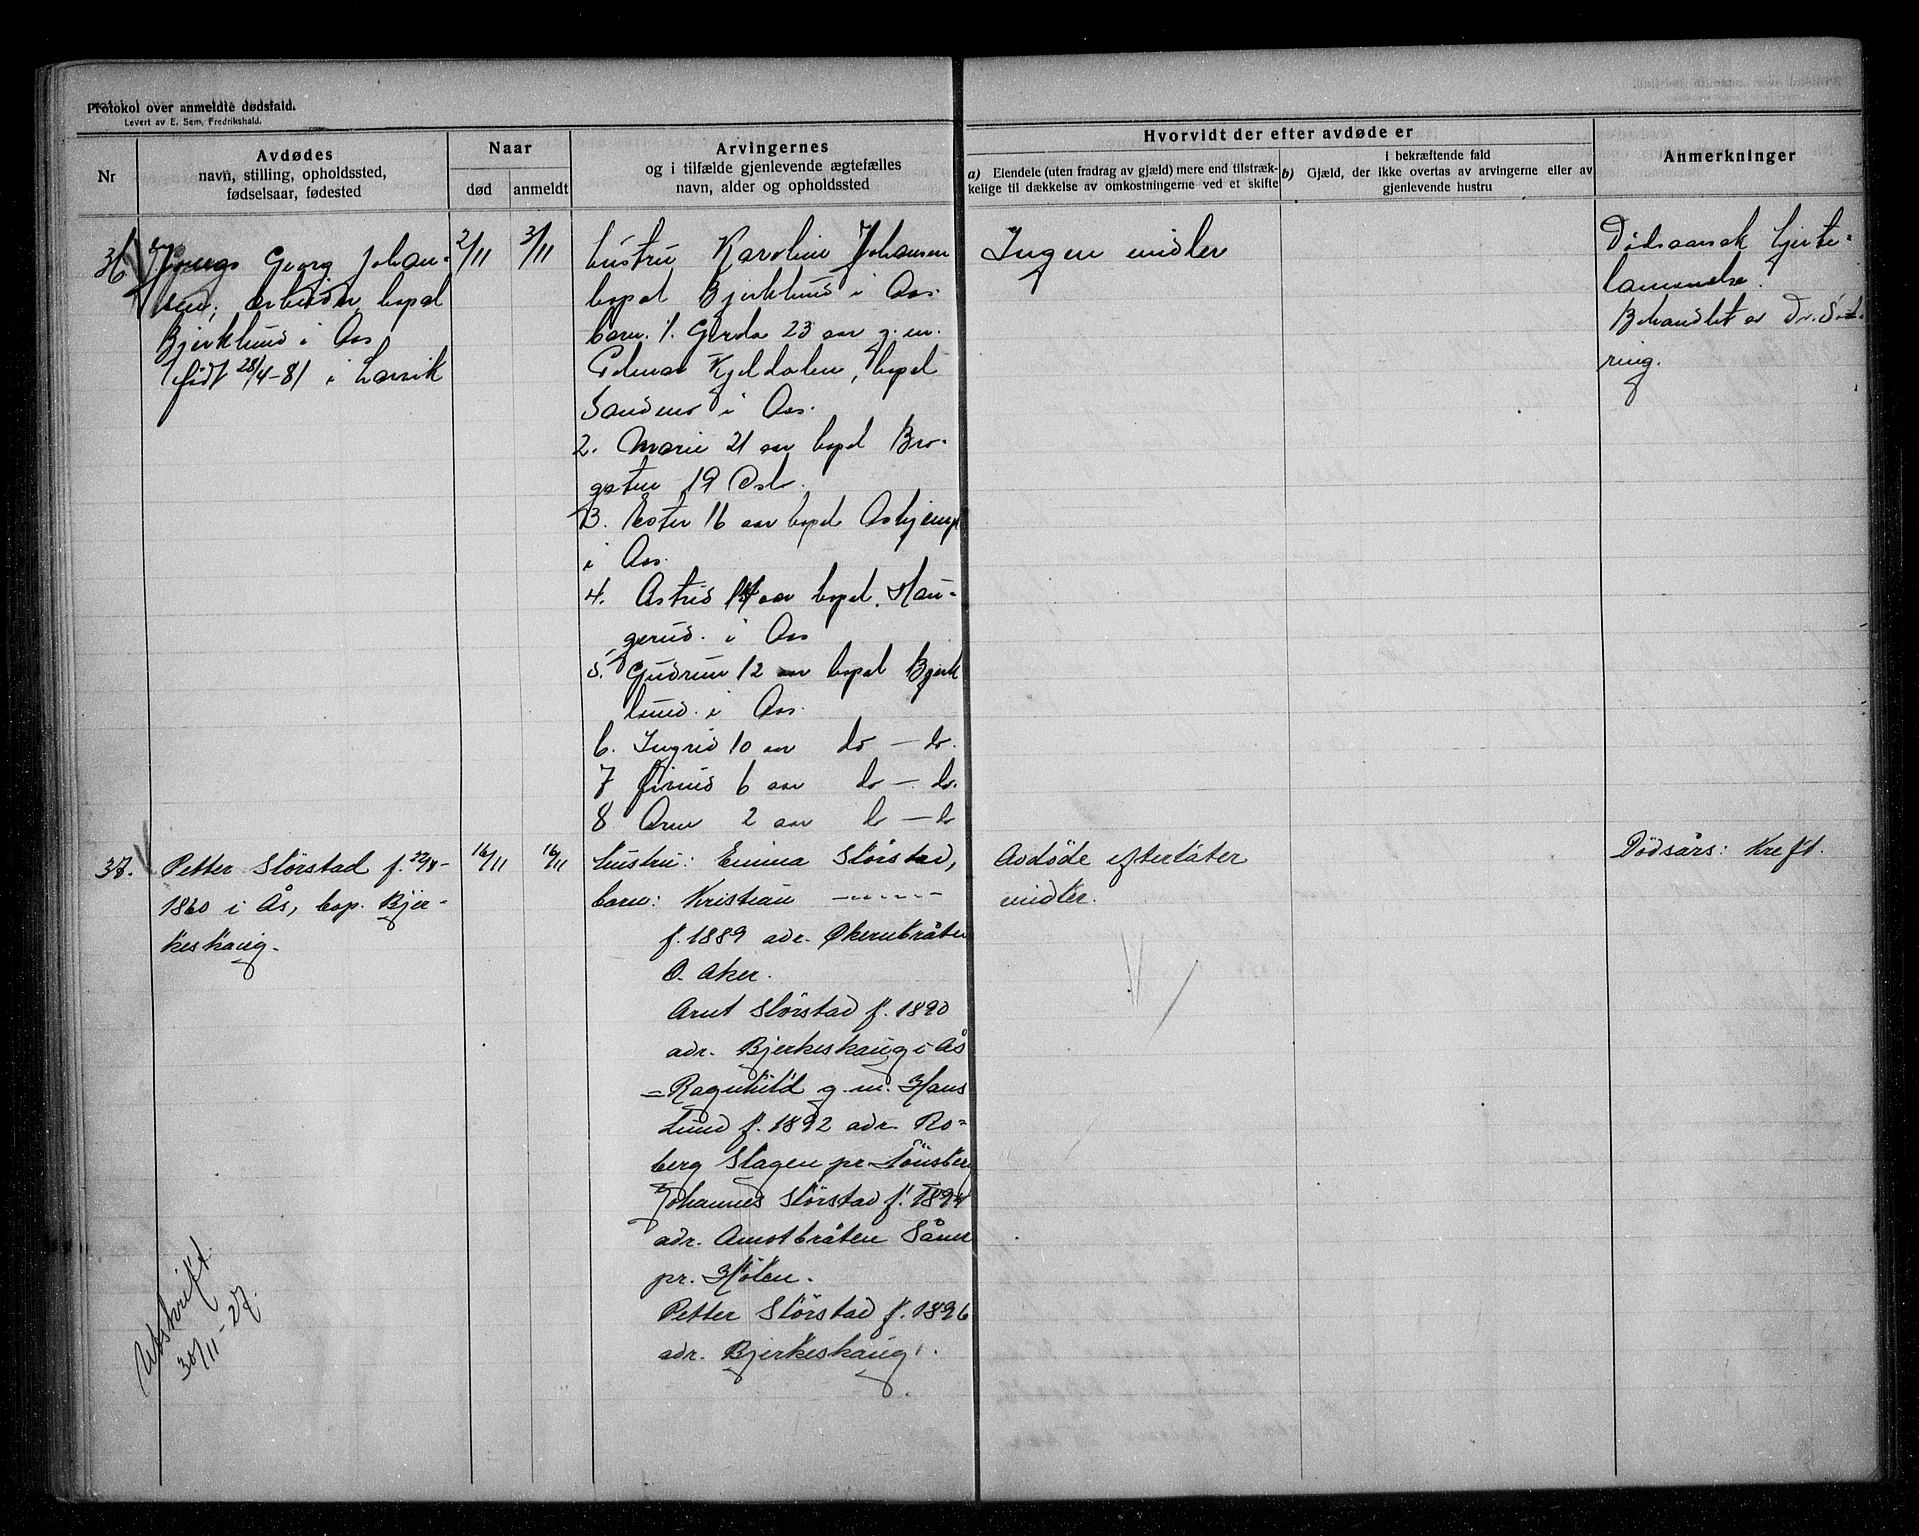 Protokol over anmeldte dødsfald.
Levert av E. Sem, Fredrikshald.
Nr
Avdødes
navn, stilling, opholdssted,
fødselsaar, fødested
Naar
død
anmeldt
Arvingernes
og i tilfælde gjenlevende ægtefælles
navn, alder og opholdssted
Hvorvidt der efter avdøde er
a) Eiendele (uten fradrag av gjæld) mere end tilstræk-
kelige til dækkelse av omkostningerne ved et skifte
b) i bekræftende fald
Gjæld, der ikke overtas av arvingerne eller av
gjenlevende hustru
Anmerkninger
36
Georg Johan-
sen, arbeider, bopæl
Bjerklund i Aas
født 28/4-81 i Larvik
2/11
3/11
hustru Karoline Johansen
bopæl Bjerklund i Aas.
barn. 1. Gerda 23 aar g. m.
Kjeldalen, bopæl
i Aas.
2. Marie 21 aar bopæl Bro-
gaten 19 Oslo.
3. Ester 16 aar bopæl
i Aas.
4. Astrid 14 aar bopæl. Hau-
gerud. i Aas
5. Gudrun 12 aar bopæl Bjerk
lund. i Aas.
6. Ingrid 10 aar do — do.
7 6 aar do — do.
8 Arne 2 aar do — do
Ingen midler
Dødsaarsak hjerte-
lammelse.
Behandlet av Dr.
ring.
37.
Petter Störstad f.
1860 i Ås, bop. Bjer-
keskaug.
16/11
16/11
Hustru: Emma Störstad,
barn: Kristian -----
f. 1889 adr. Økernbråten
Ø. Aker.
Arnt Störstad f. 1890
adr. Bjerkeskaug i Ås
= Ragnhild g. m. Hans
Lund f. 1892 adr. Ro-
berg Slagen pr. Tönsberg
Johannes Störstad f. 1894
adr. Såner
pr. Hölen.
Petter Störstad f. 1896
adr. Bjerkeskaug.
Avdöde efterlater
midler.
Dödsårs: Kreft.
Utskrift
30/11-27.